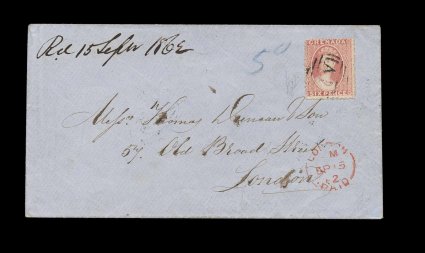 Rd 15 Septr 1862
50
GRENADA
SIX PENCE
Messrs Thomas Duncan & Son
57 Old Broad Street
London
LONDON
M
SP 15
2
PAID